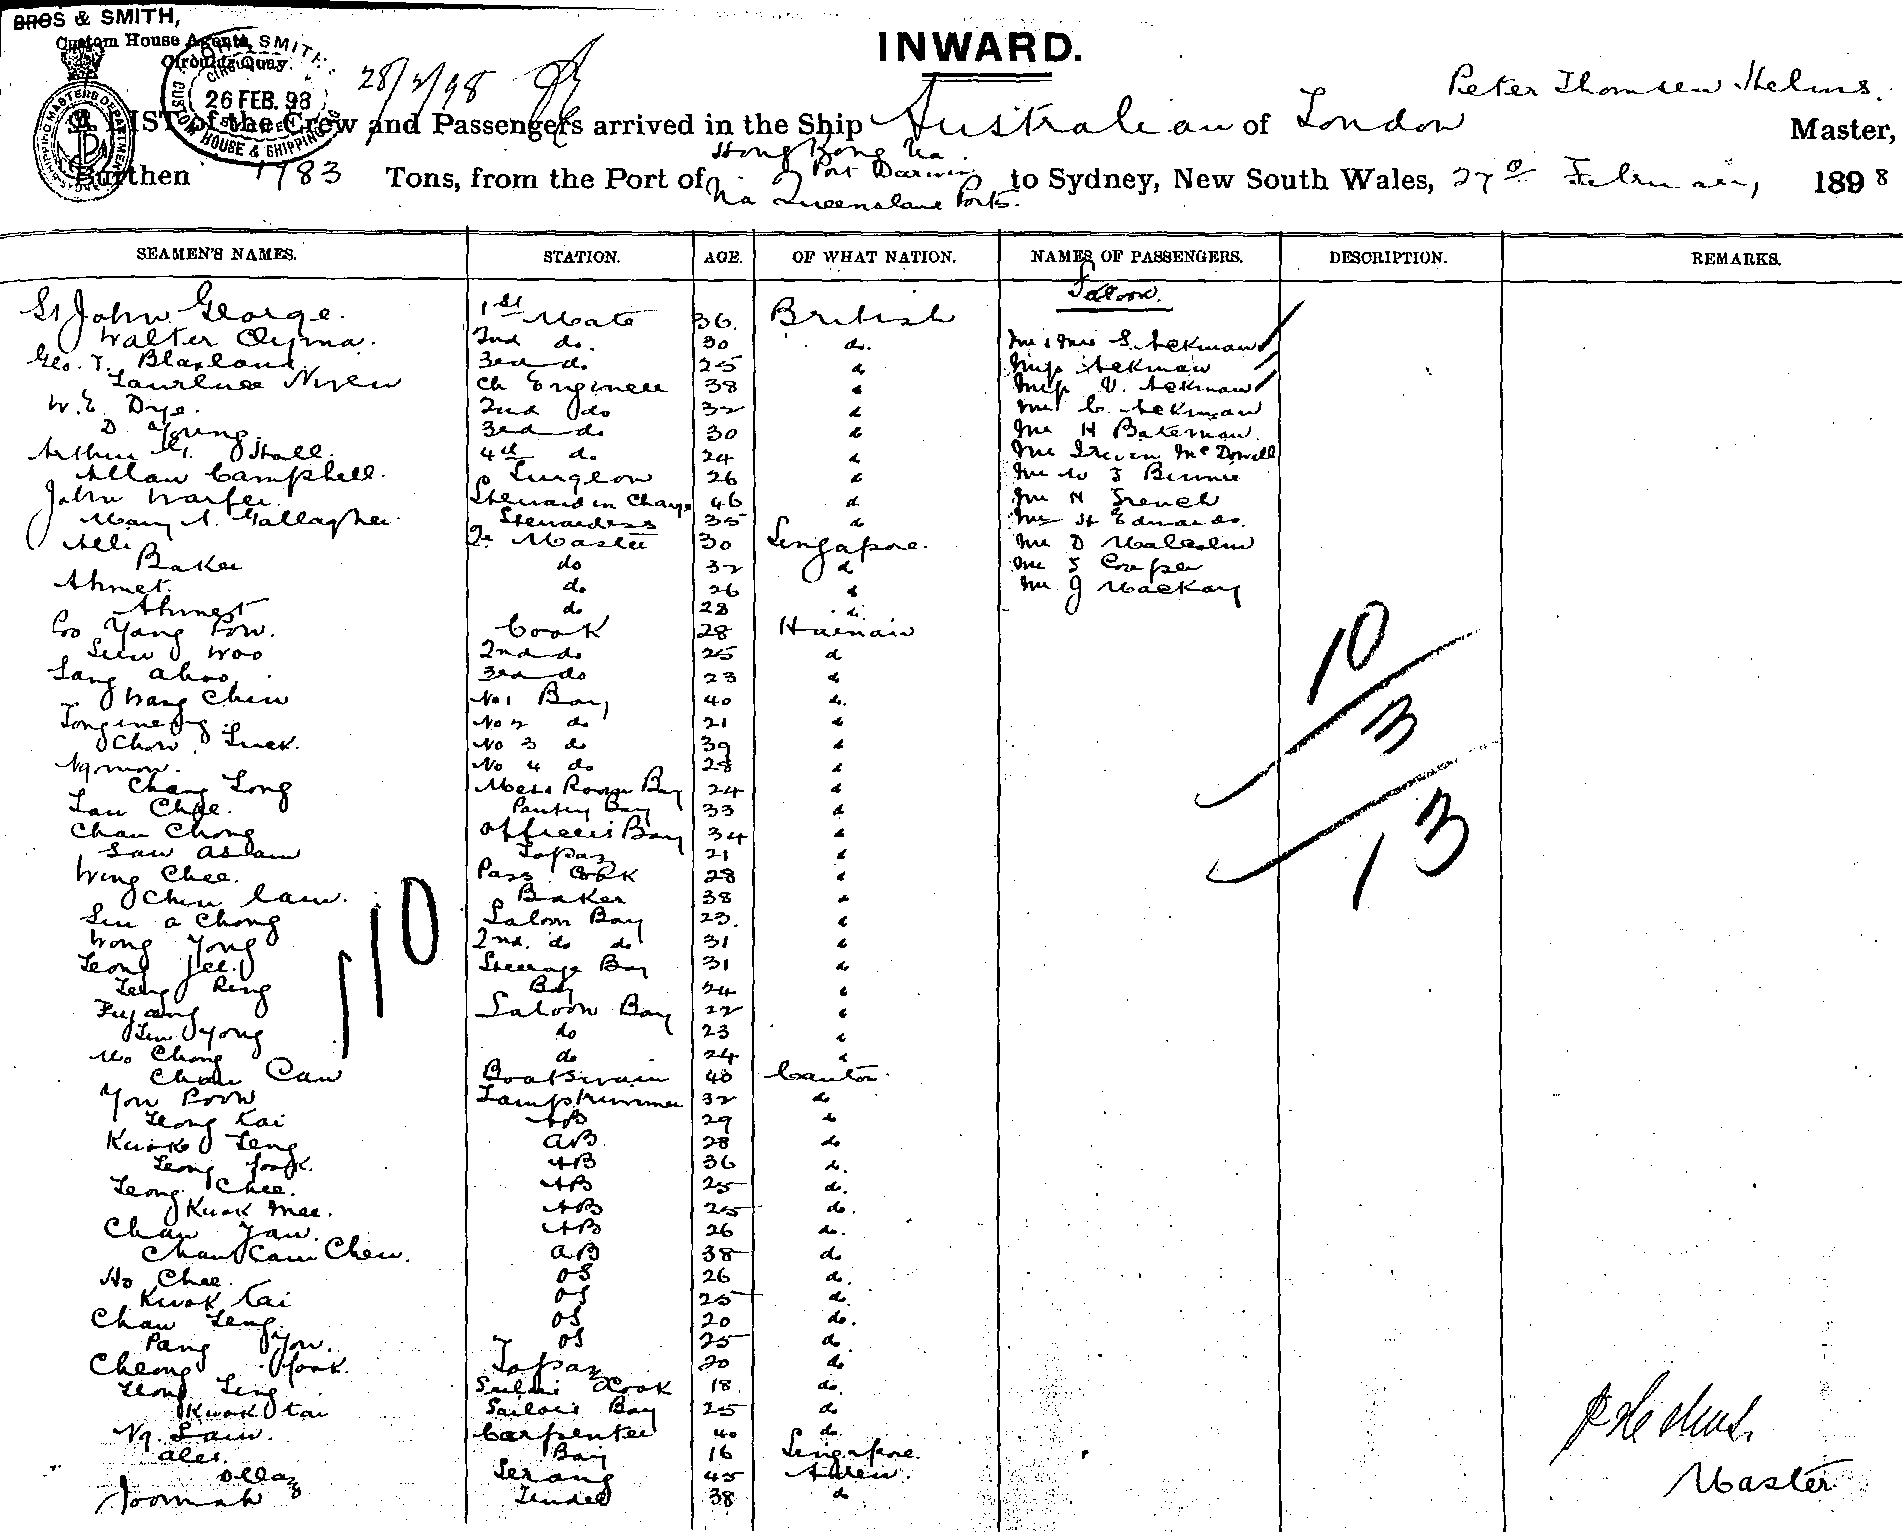 BROS & SMITH,
Custom House Agents,
Circular Quay.
26 FEB. 98
28/2/98
INWARD.
Peter Thomsen Helms.
A LIST of the Crew and Passengers arrived in the Ship Australian of London Master,
Hong Kong via
Port Darwin
Burthen 1783 Tons, from the Port of to Sydney, New South Wales, 27th February, 1898
via Queensland Ports.
SEAMEN'S NAMES. STATION. AGE. OF WHAT NATION. NAMES OF PASSENGERS. DESCRIPTION. REMARKS.
Saloon.
St John George. 1st Mate 36. British
Walter 2nd do. 30 do. Mr & Mrs S. Ackman
Geo. T. Blaxland 3rd do 25 do Miss Ackman
Laurence Niven Ch Engineer 38 do Miss V. Ackman
W. E. Dye. 2nd do 32 do Mr C. Ackman
D Young 3rd do 30 do Mr H Bateman
Arthur G. Hall. 4th do 24 do Mr Irwin McDowell
Allan Campbell. Surgeon 26 do Mr W J Binnie
John Steward in Charge 46 do Mr H French
Mary A. Gallagher Stewardess 35 do Mr H Edwards.
Alli Qr Master 30 Singapore. Mr D Malcolm
Baker do 32 do Mr S Cooper
Ahmet. do 26 do Mr J Mackay
Ahmet do 28 do
Yang Pow. Cook 28 Hainan
Woo 2nd do 25 do
Sang ahoo. 3rd do 23 do
Wang Chin No 1 Boy 40 do.
No 2 do 21 do
Chow Luck. No 3 do 39 do
No 4 do 28 do
Chang Tong Mess Room Boy 24 do
Lau Chee. Pantry Boy 33 do
Chan Chong Officers Boy 34 do
Topaz 21 do
Wing Chee. Pass Cook 28 do
Chin Cam. Baker 38 do
Lin a Chong Saloon Boy 23. do
Wong Yong 2nd. do do 31 do
Leong Jee. Steerage Boy 31 do
Leng Ring Boy 24 do
Saloon Boy 22 do
Lim Yong do 23 do
Mo Chong do 24 do
Chan Can Boatswain 40 Canton.
You Poon Lamptrimmer 32 do
Leong Kai AB 29 do
Kwok Leng AB 28 do
Leong Yook. AB 36 do.
Leong Chee. AB 25 do.
Kwok Mee. AB 25 do.
Chan Yau. AB 26 do.
Chan Cam Chew. AB 38 do
Ho Chee. OS 26 do.
Kwok Kai OS 25 do.
Chan Leng. OS 20 do.
Pang You. OS 25 do
Cheong Yook. Topaz 20 do
Leong Ling Sailors Cook 18 do.
Kwok tai Sailors Boy 25 do
Ng. Sam. Carpenter 40 do
Boy 16 Singapore.
Serang 45
Joomah Tindal 38 do
10
3
13
110
P Helms.
Master